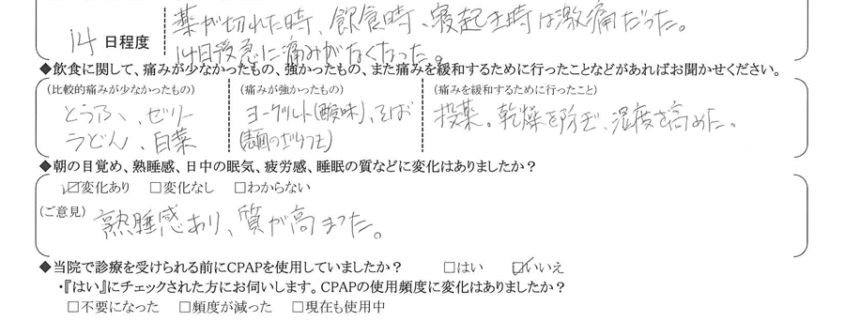 薬が切れた時、飲食時、寝起き時は激痛だった。
14 日程度
14日後急に痛みがなくなった。
◆飲食に関して、痛みが少なかったもの、強かったもの、また痛みを緩和するために行ったことなどがあればお聞かせください。
(比較的痛みが少なかったもの) (痛みが強かったもの) (痛みを緩和するために行ったこと)
とうふ、ゼリー ヨーグルト(酸味)、そば 投薬。乾燥を防ぎ、湿度を高めた。
うどん、白菜 (表面のざらつき)
◆朝の目覚め、熟睡感、日中の眠気、疲労感、睡眠の質などに変化はありましたか？
☑変化あり □変化なし □わからない
(ご意見) 熟睡感あり、質が高まった。
◆当院で診療を受けられる前にCPAPを使用していましたか？ □はい ☑いいえ
・『はい』にチェックされた方にお伺いします。CPAPの使用頻度に変化はありましたか？
□不要になった □頻度が減った □現在も使用中